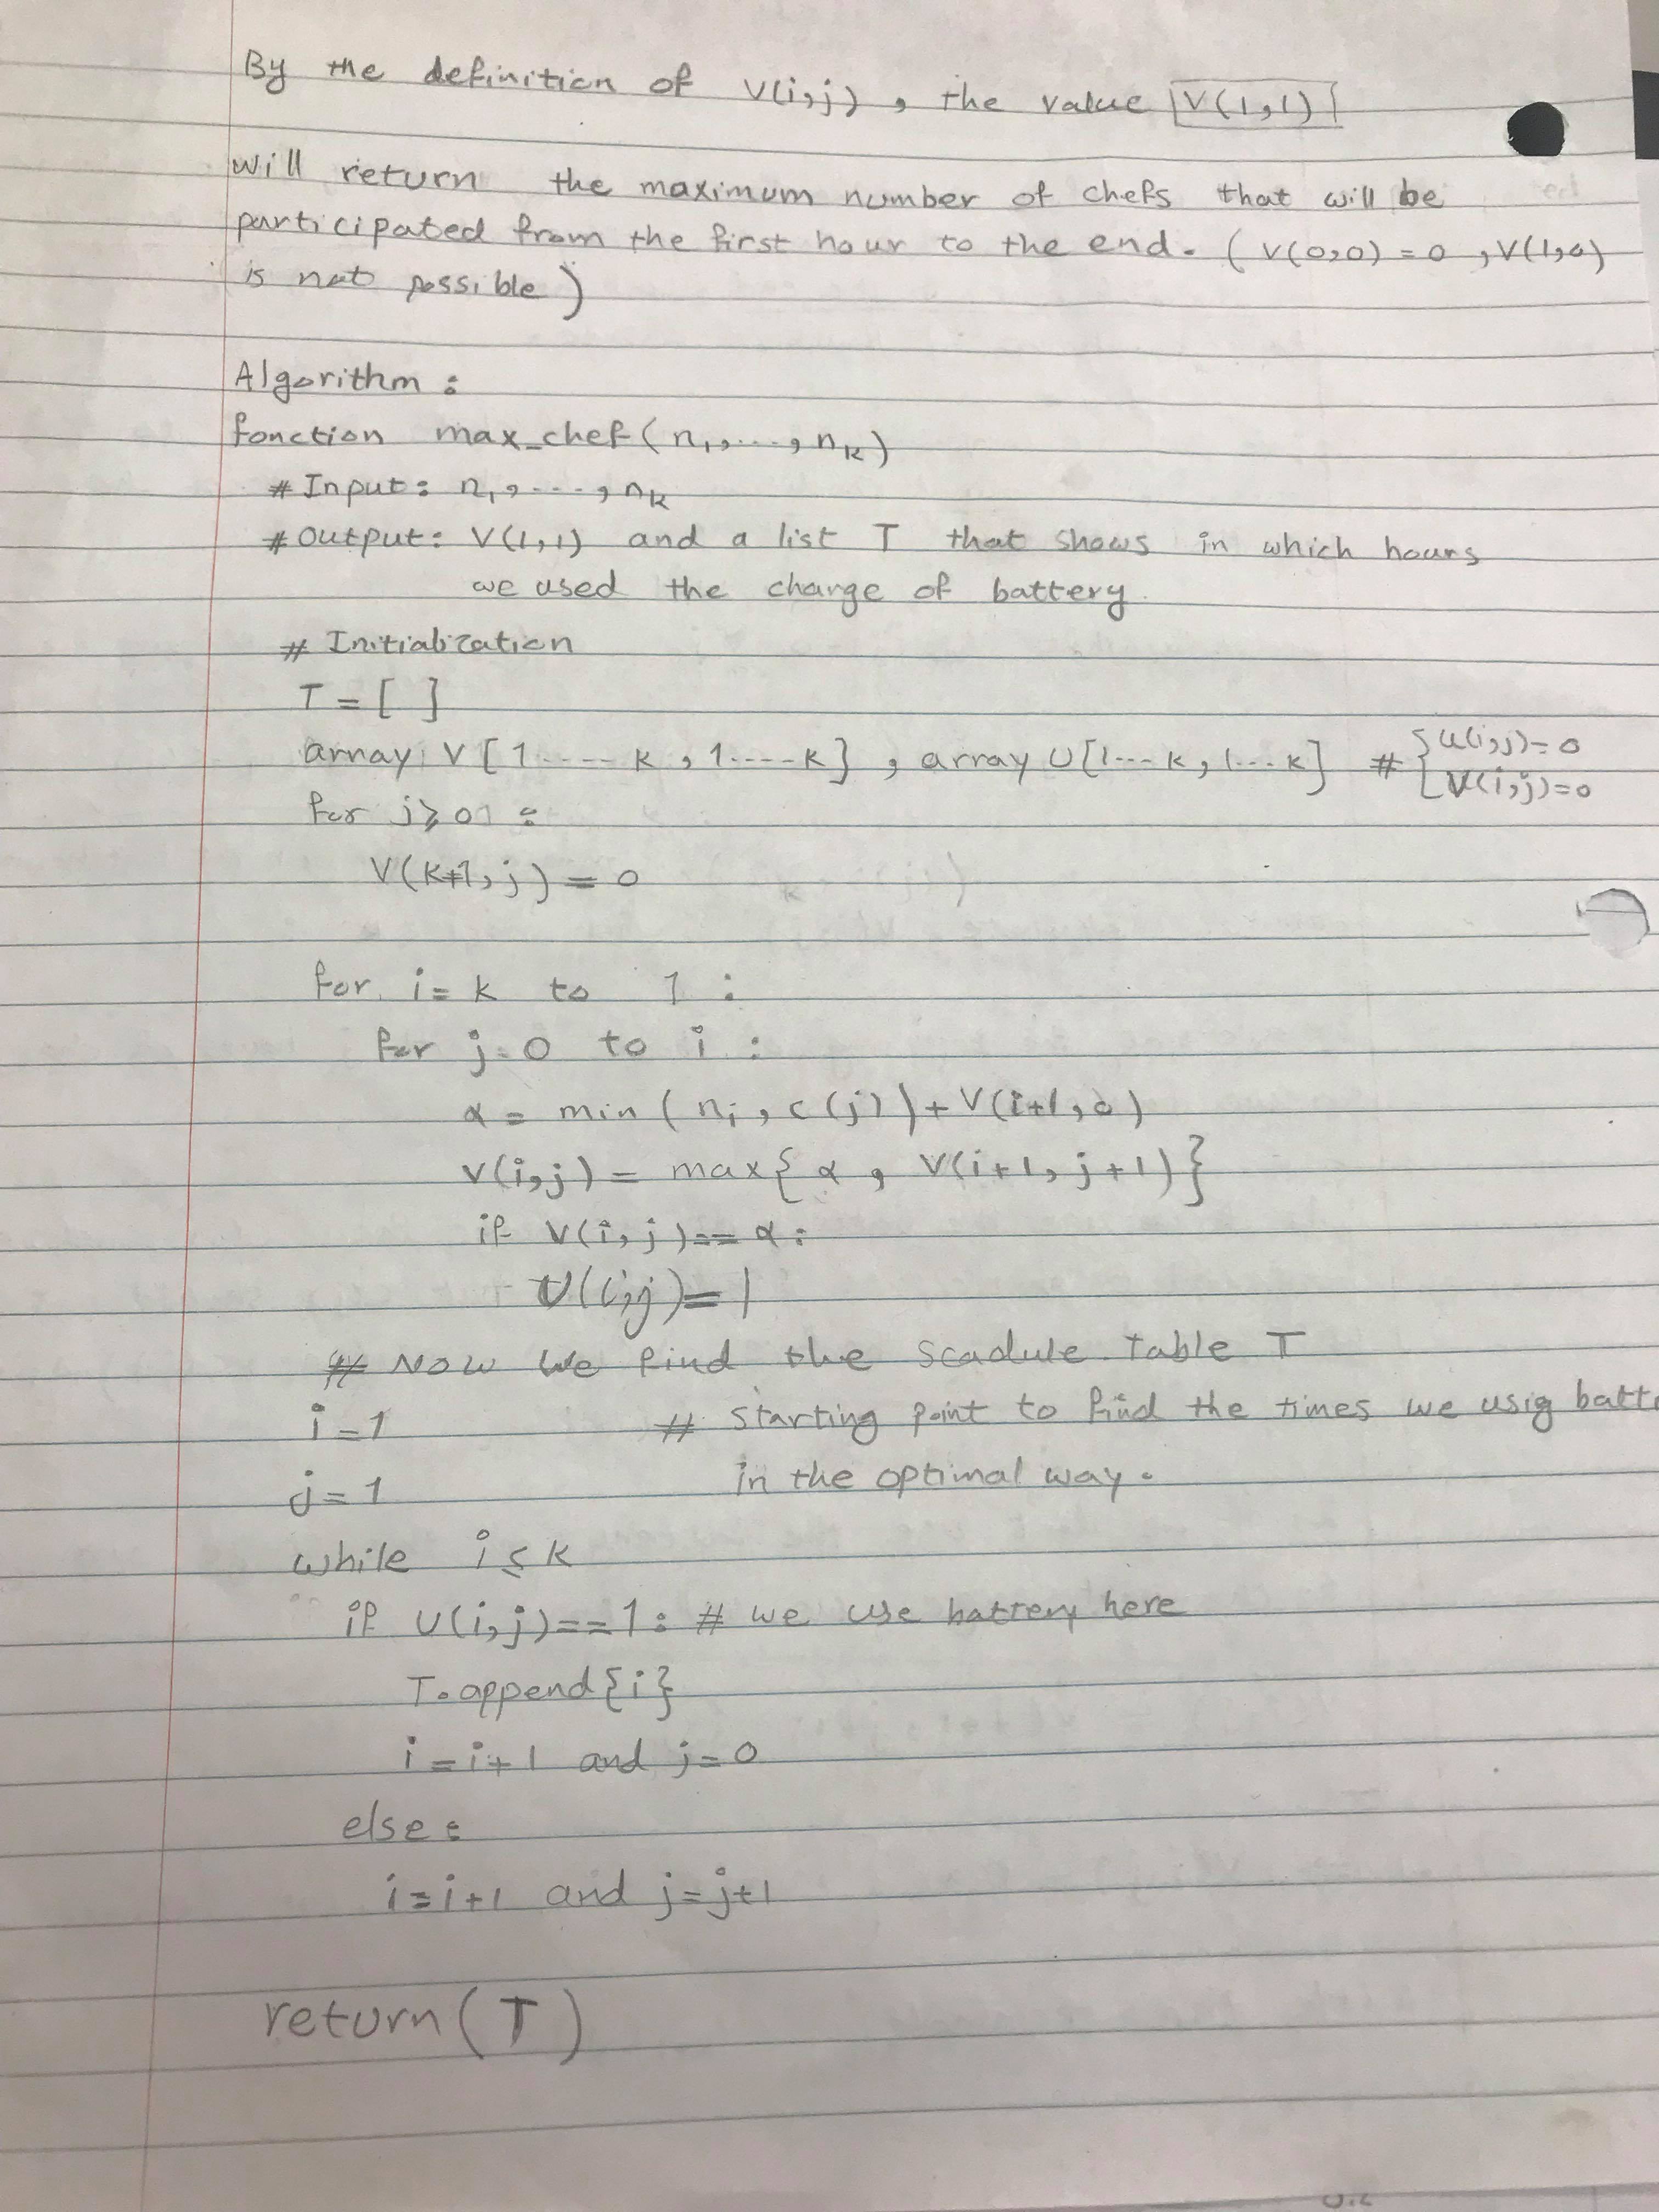 By the definition of V(i,j) , the value V(1,1)
will return the maximum number of chefs that will be
participated from the first hour to the end. ( V(0,0) = 0 , V(1,0)
is not possible )
Algorithm :
fonction max_chef ( n₁, ..., nₖ )
# Input : n₁, ..., nₖ
# Output : V(1,1) and a list T that shows in which hours
we used the charge of battery.
# Initialization
T = [ ]
array V [ 1 ---- k , 1 ---- k ] , array U [ 1 --- k , 1 --- k ] # { U(i,j) = 0
V(i,j) = 0
for j ≥ 0 :
V(k+1, j) = 0
for i = k to 1 :
for j = 0 to i :
α = min ( nᵢ , c(j) ) + V(i+1, 0)
V(i,j) = max { α , V(i+1, j+1) }
if V(i,j) == α :
U(i,j) = 1
# Now we find the scadule table T
i = 1 # starting point to find the times we usig batt
j = 1 in the optimal way.
while i ≤ k
if U(i,j) == 1 : # we use battery here
T.append{i}
i = i+1 and j = 0
else :
i = i+1 and j = j+1
return ( T )